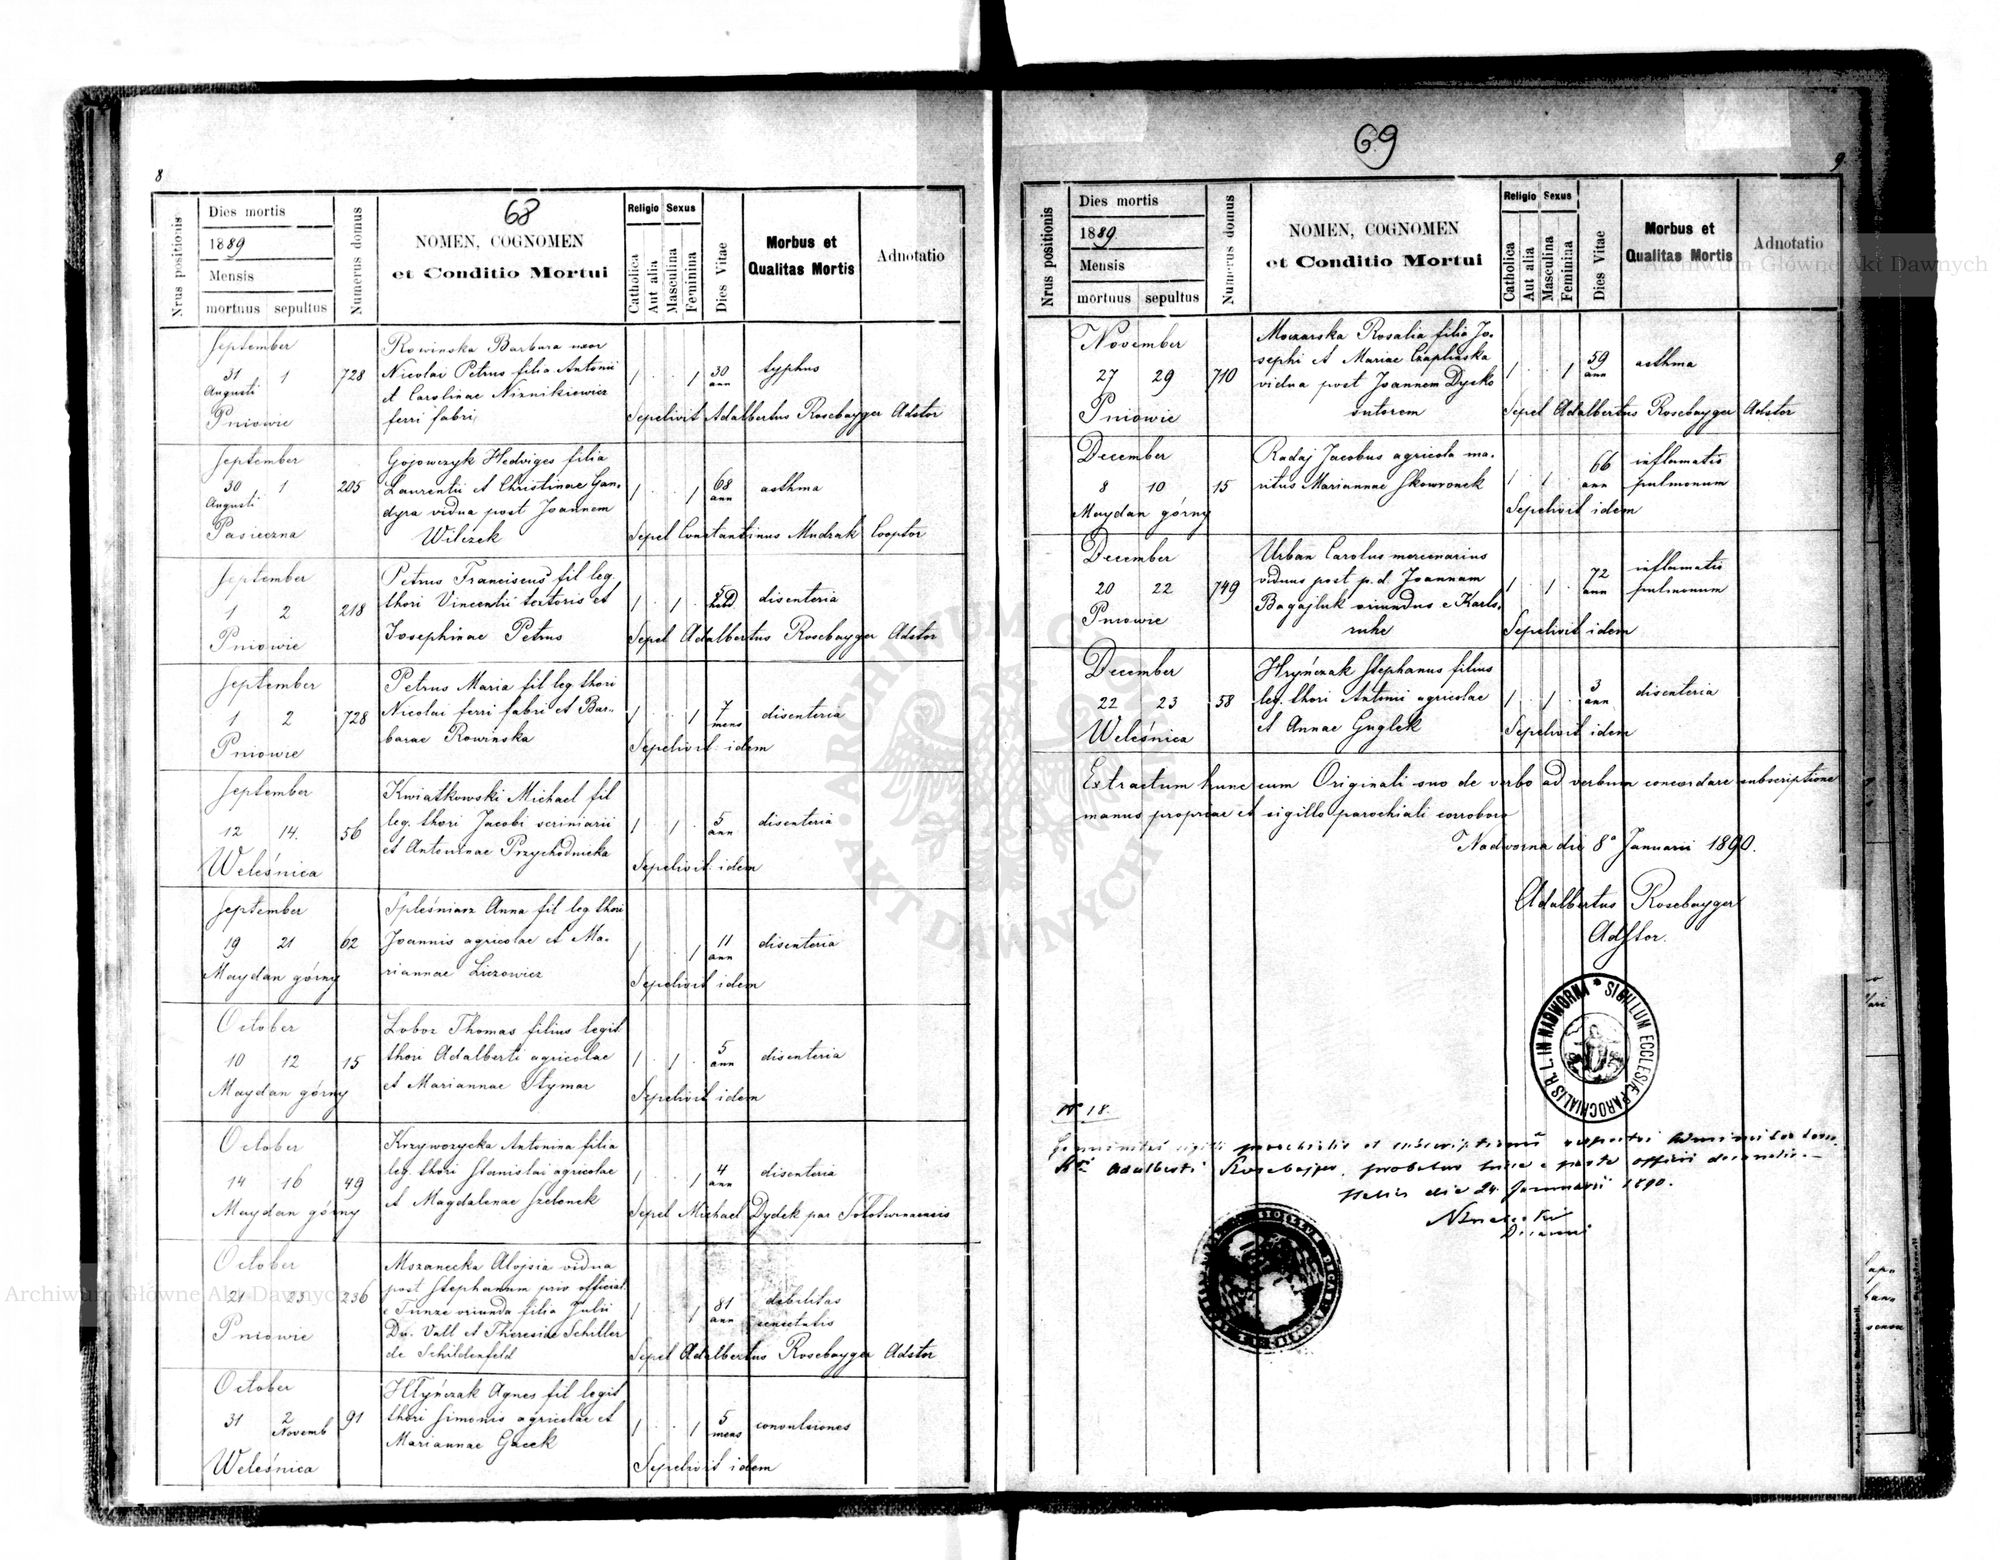 8
68
Nrus positionis
Dies mortis
1889
Mensis
mortuus sepultus
Numerus domus
NOMEN, COGNOMEN
et Conditio Mortui
Religio Sexus
Catholica
Aut alia
Masculina
Feminina
Dies Vitae
Morbus et
Qualitas Mortis
Adnotatio
September
31 1 728
Augusti
Pniowie
Rowinska Barbara uxor
Nicolai Petrus filia Antonii
et Carolinae Niznikiewicz
ferri fabri
1 . . 1 30 ann typhus
Sepelivit Adalbertus Rosebayger Adstor
September
30 1 205
Augusti
Pasieczna
Gojowczyk Hedviges filia
Laurentii et Christinae Gan-
dyra vidua post Joannem
Wilczek
1 . . 1 68 ann asthma
Sepel Constantinus Mudrak Cooptor
September
1 2 218
Pniowie
Petrus Franciscus fil leg.
thori Vincentii textoris et
Josephinae Petrus
1 . 1 . hebd. disenteria
Sepel Adalbertus Rosebayger Adstor
September
1 2 728
Pniowie
Petrus Maria fil leg thori
Nicolai ferri fabri et Bar-
barae Rowinska
1 . . 1 7 mens disenteria
Sepelivit idem
September
12 14. 56
Weleśnica
Kwiatkowski Michael fil
leg. thori Jacobi scriniarii
et Antoninae Przychodnicka
1 . 1 . 5 ann disenteria
Sepelivit idem
September
19 21 62
Maydan górny
Spleśniarz Anna fil leg thori
Joannis agricolae et Ma-
riannae Liczowicz
1 . . 1 11 ann disenteria
Sepelivit idem
October
10 12 15
Maydan górny
Loboz Thomas filius legit
thori Adalberti agricolae
et Mariannae Stymar
1 . 1 . 5 ann disenteria
Sepelivit idem
October
14 16 49
Maydan górny
Krzyworzycka Antonina filia
leg. thori Stanislai agricolae
et Magdalenae Szelonek
1 . . 1 4 ann disenteria
Sepel Michael Dydek par Solotwinensis
October
21 23 236
Pniowie
Mszanecka Aloysia vidua
post Stephanum priv official.
e Tunze oriunda filia Julii
Du. Vall et Theresiae Schiller
de Schildenfeld
1 . . 1 81 ann debilitas
senectutis
Sepel Adalbertus Rosebayger Adstor
October
31 2 91
Novemb
Weleśnica
Hłyńczak Agnes fil legit
thori Simonis agricolae et
Mariannae Gacek
1 . . 1 5 mens convulsiones
Sepelivit idem
69
9
Nrus positionis
Dies mortis
1889
Mensis
mortuus sepultus
Numerus domus
NOMEN, COGNOMEN
et Conditio Mortui
Religio Sexus
Catholica
Aut alia
Masculina
Feminina
Dies Vitae
Morbus et
Qualitas Mortis
Adnotatio
November
27 29 710
Pniowie
Moczarska Rosalia filia Jo-
sephi et Mariae Czaplinska
vidua post Joannem Dysko
sutorem
1 . . 1 59 ann asthma
Sepel Adalbertus Rosebayger Adstor
December
8 10 15
Maydan górny
Radaj Jacobus agricola ma-
ritus Mariannae Skowronek
1 . 1 . 66 ann inflamatio
pulmonum
Sepelivit idem
December
20 22 749
Pniowie
Urban Carolus mercenarius
viduus post p. d. Joannam
Bagajluk oriundus e Karls-
ruhe
1 . 1 . 72 ann inflamatio
pulmonum
Sepelivit idem
December
22 23 58
Weleśnica
Hryńczak Stephanus filius
leg. thori Antonii agricolae
et Annae Guglek
1 . 1 . 3 ann disenteria
Sepelivit idem
Extractum hunc cum Originali suo de verbo ad verbum concordare subscriptione
manus propriae et sigillo parochiali corroboro
Nadworna die 8º Januarii 1890.
Adalbertus Rosebayger
Adstor.
SIGILLUM ECCLESIÆ PAROCHIALIS R. L. IN NADWORNA
Nº 18.
sigilli parochialis et subscriptionis
Adalberti Rosebayger, officii decanalis.
die 24 Januarii 1890.
Archiwum Główne Akt Dawnych
Archiwum Główne Akt Dawnych
ARCHIWUM GŁÓWNE AKT DAWNYCH